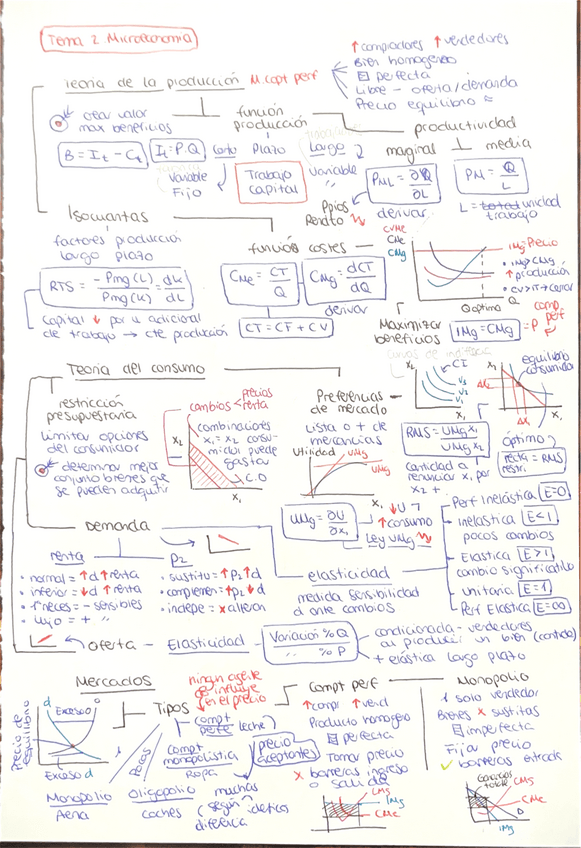 Tema 2 Microeconomía
↑compradores ↑vendedores
Bien homogéneo
perfecta
Libre - oferta/demanda
Precio equilibrio =
Teoría de la producción M. copt perf
crear valor
max beneficios
función
producción
productividad
marginal
media
B = It - Ct
It = P.Q
Corto Plazo Largo
Variable
Fijo
Trabajo
Capital
Variable
PML = ∂Q/∂L
PM = Q/L
Ppios
Rendto
derivar
L = total unidad
trabajo
Isocuantas
factores producción
largo plazo
RTS = -Pmg(L)/Pmg(K) = dk/dL
Capital ↓ por u adicional
de trabajo → cte producción
función costes
CMe = CT/Q
CMg = dCT/dQ
derivar
CT = CF + CV
CVMe
CMe
CMg
IMg=Precio
• IMg>CMg
↑ producción
• CV>IT→cerrar
Q óptimo
Q
Maximizar
beneficios
IMg = CMg = P
comp.
perf
Teoría del consumo
restricción
presupuestaria
Limitar opciones
del consumidor
determinar mejor
conjunto bienes que
se pueden adquirir
cambios
precios
renta
X2
combinaciones
X1 = X2 consu-
midor puede
gastar
C.O
X1
Preferencias
de mercado
Lista o + de
mercancías
Utilidad
UMg
UMg
X1
X2
CI
U3
U2
U1
X1
equilibrio
consumidor
ΔX2
ΔX1
X1
RMS = UMg X1/UMg X2
cantidad a
renunciar X1 por
X2 +
óptimo
recta = RMS
restri.
UMg = ∂U/∂X1
↓U
↑consumo
Ley UMg
Demanda
renta
• normal = ↑d ↑renta
• inferior = ↓d ↑renta
• 1ª neces = - sensibles
• lujo = + "
P2
• sustitu = ↑P2 ↑d
• complemen = ↑P2 ↓d
• indepe = x alteran
elasticidad
medida sensibilidad
d ante cambios
Perf Inelástica E=0
Inelástica E<1
pocos cambios
Elástica E>1
cambio significativo
Unitaria E=1
Perf Elástica E=∞
Oferta - Elasticidad
Variación % Q
" % P
condicionada - vendedores
+ elástica largo plazo
Mercados
ningún agente
influye
en el precio
Precio de
equilibrio
d
o
Exceso
Exceso d
Tipos
compt
perfe
leche
compt
monopolística
Ropa
precio
aceptantes
Pocos
Monopolio
Oligopolio
coches
muchas
(según
diferencia
idénticos
Compt perf
↑compr ↑vend
Producto homogéneo
perfecta
Tomar precio
x barreras ingreso
o salida
CMg
IMg
CMe
Monopolio
1 solo vendedor
Bienes x sustitas
imperfecta
Fijar precio
barreras entrada
Ganancias
total
CMg
CMe
D
IMg